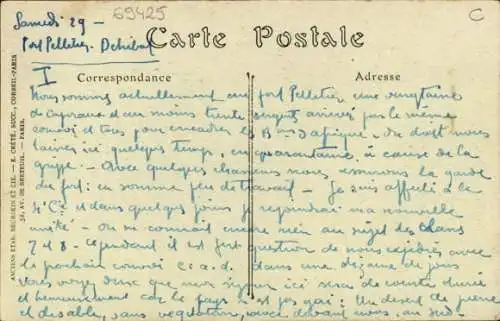 Samedi 29 –
69425
C
Fort Pelletier. Dehibat
Carte Postale
I
Correspondance
Adresse
Nous sommes actuellement au fort Pelletier, une vingtaine
de caporaux au moins trente sergents arrivés par le même
convoi et tous pour encadrer les B^ons d'afrique. On doit nous
laisser ici quelques temps, en quarantaine, à cause de la
grippe. – Avec quelques chasseurs nous assurons la garde
du fort: en somme peu de travail – Je suis affecté à la
4^e C^ie et dans quelques jours je rejoindrai ma nouvelle
unité – on ne connait encore rien au sujet des classes
7 et 8 – cependant il est fort question de nous
le prochain convoi c. a. d. dans une dizaine de jours
Vous voyez donc que mon séjour ici sera de courte durée
et heureusement car le pays n'est pas gai: Un désert de pierre
et de sable, sans végétation, avec devant nous, au Sud
ANCIENS ETAB. NEURDEIN ET CIE. – E. CRÉTÉ, SUCC., CORBEIL-PARIS
52, AV. DE BRETEUIL. – PARIS.